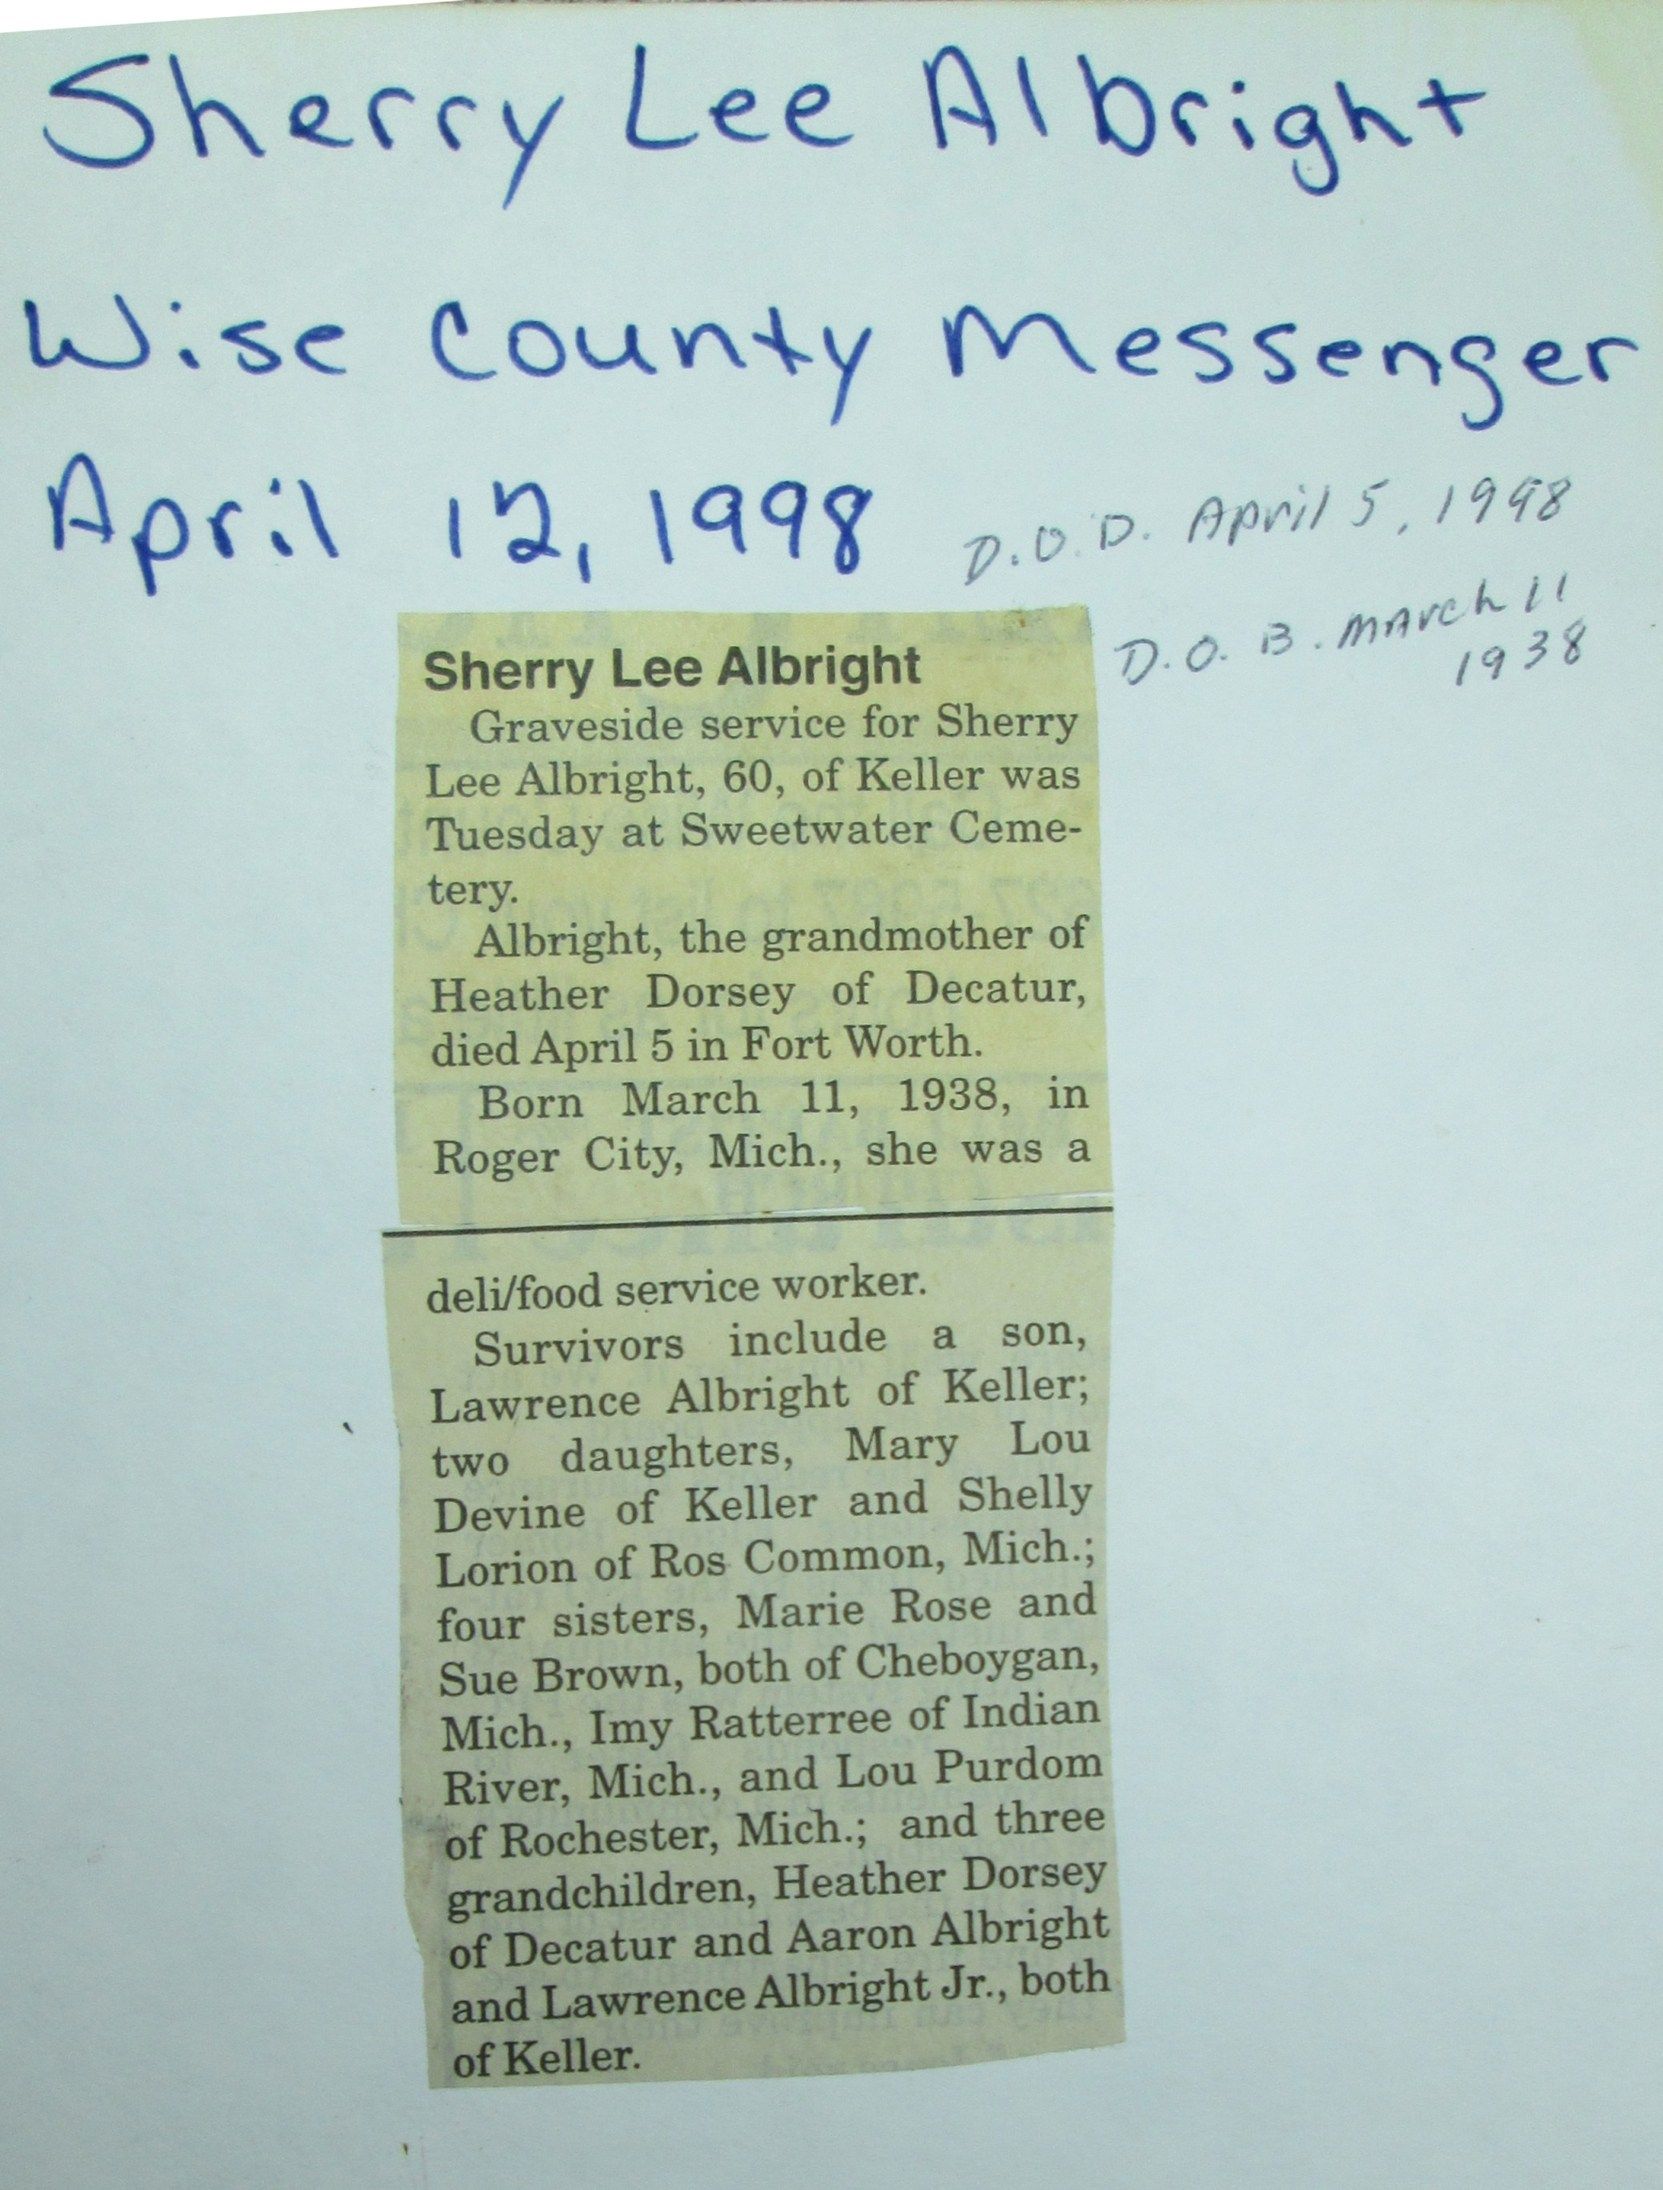 Sherry Lee Albright
Wise County Messenger
April 12, 1998
D.O.D. April 5, 1998
D.O.B. March 11
1938
Sherry Lee Albright
Graveside service for Sherry
Lee Albright, 60, of Keller was
Tuesday at Sweetwater Ceme-
tery.
Albright, the grandmother of
Heather Dorsey of Decatur,
died April 5 in Fort Worth.
Born March 11, 1938, in
Roger City, Mich., she was a
deli/food service worker.
Survivors include a son,
Lawrence Albright of Keller;
two daughters, Mary Lou
Devine of Keller and Shelly
Lorion of Ros Common, Mich.;
four sisters, Marie Rose and
Sue Brown, both of Cheboygan,
Mich., Imy Ratterree of Indian
River, Mich., and Lou Purdom
of Rochester, Mich.; and three
grandchildren, Heather Dorsey
of Decatur and Aaron Albright
and Lawrence Albright Jr., both
of Keller.